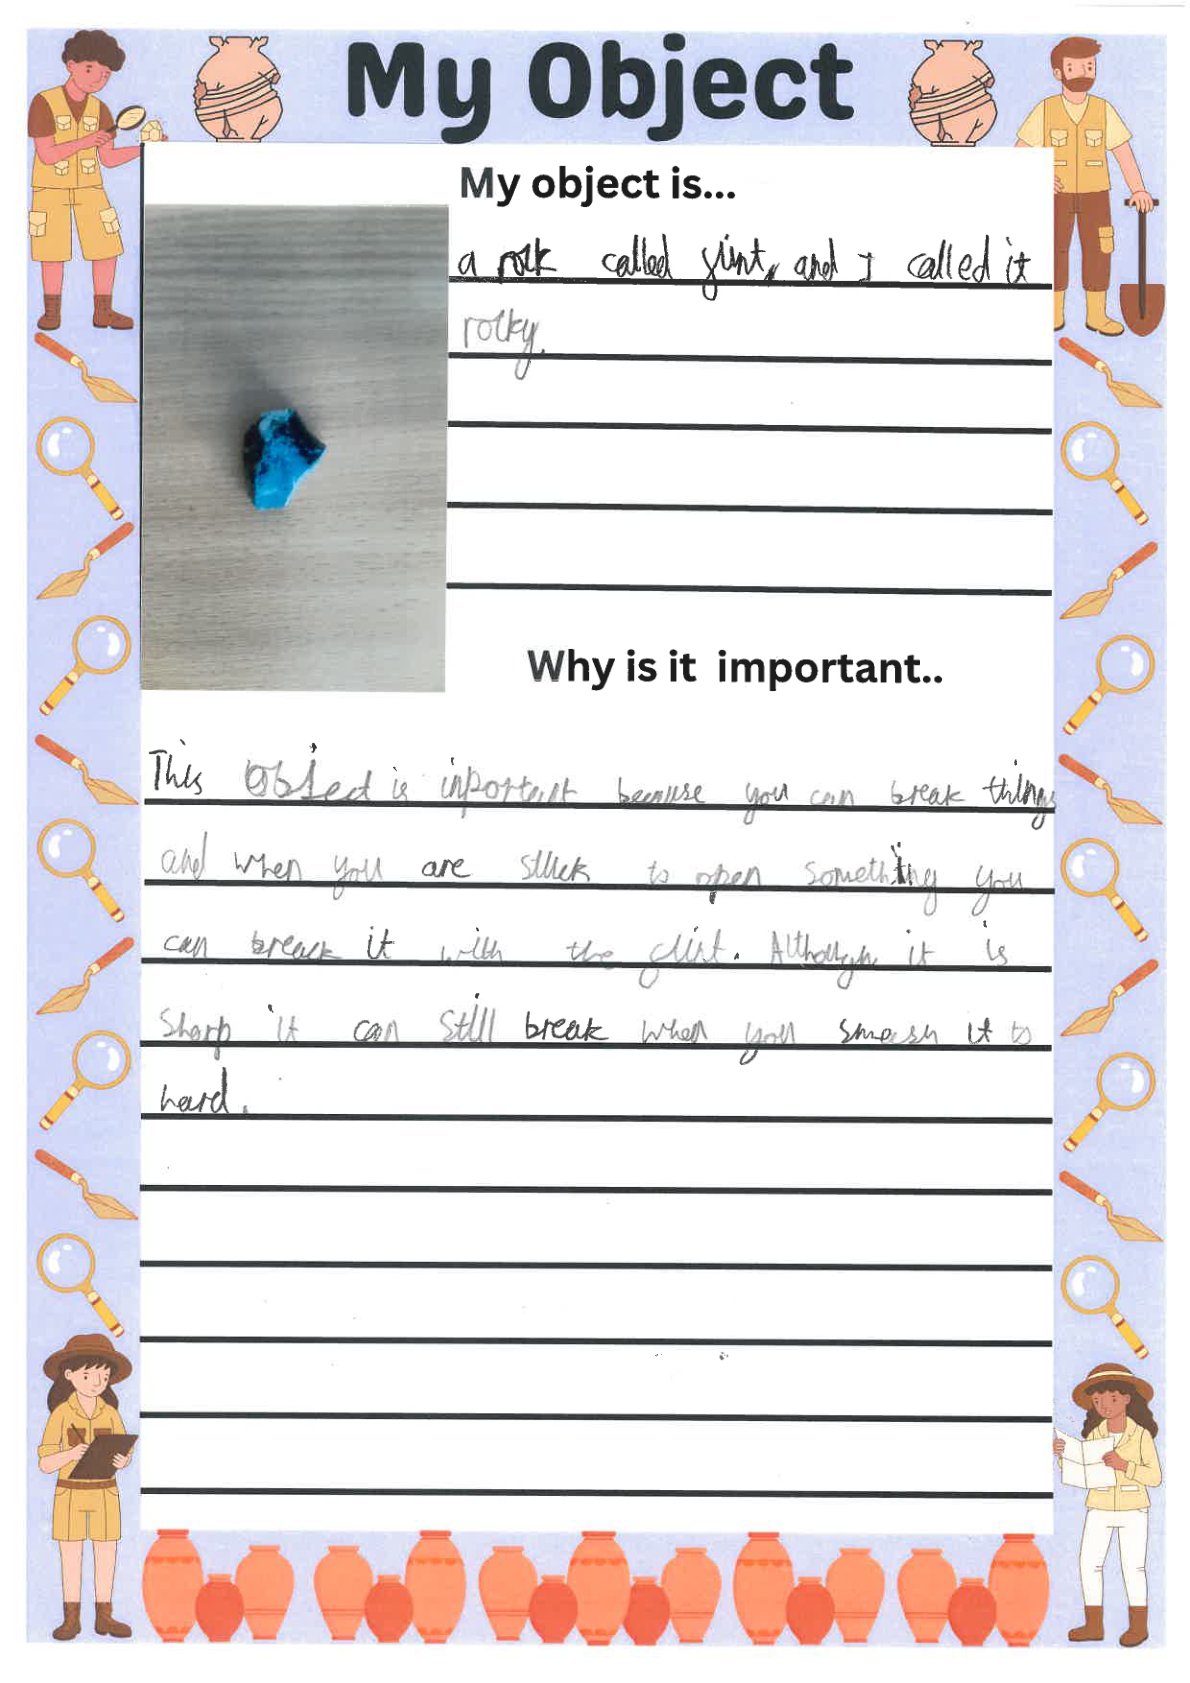 My Object
My object is...
a rock called flint, and I called it
rocky.
Why is it important..
This object is inportant because you can break things
and when you are stuck to open something you
can break it with the flint. Although it is
sharp it can still break when you smash it to
hard.